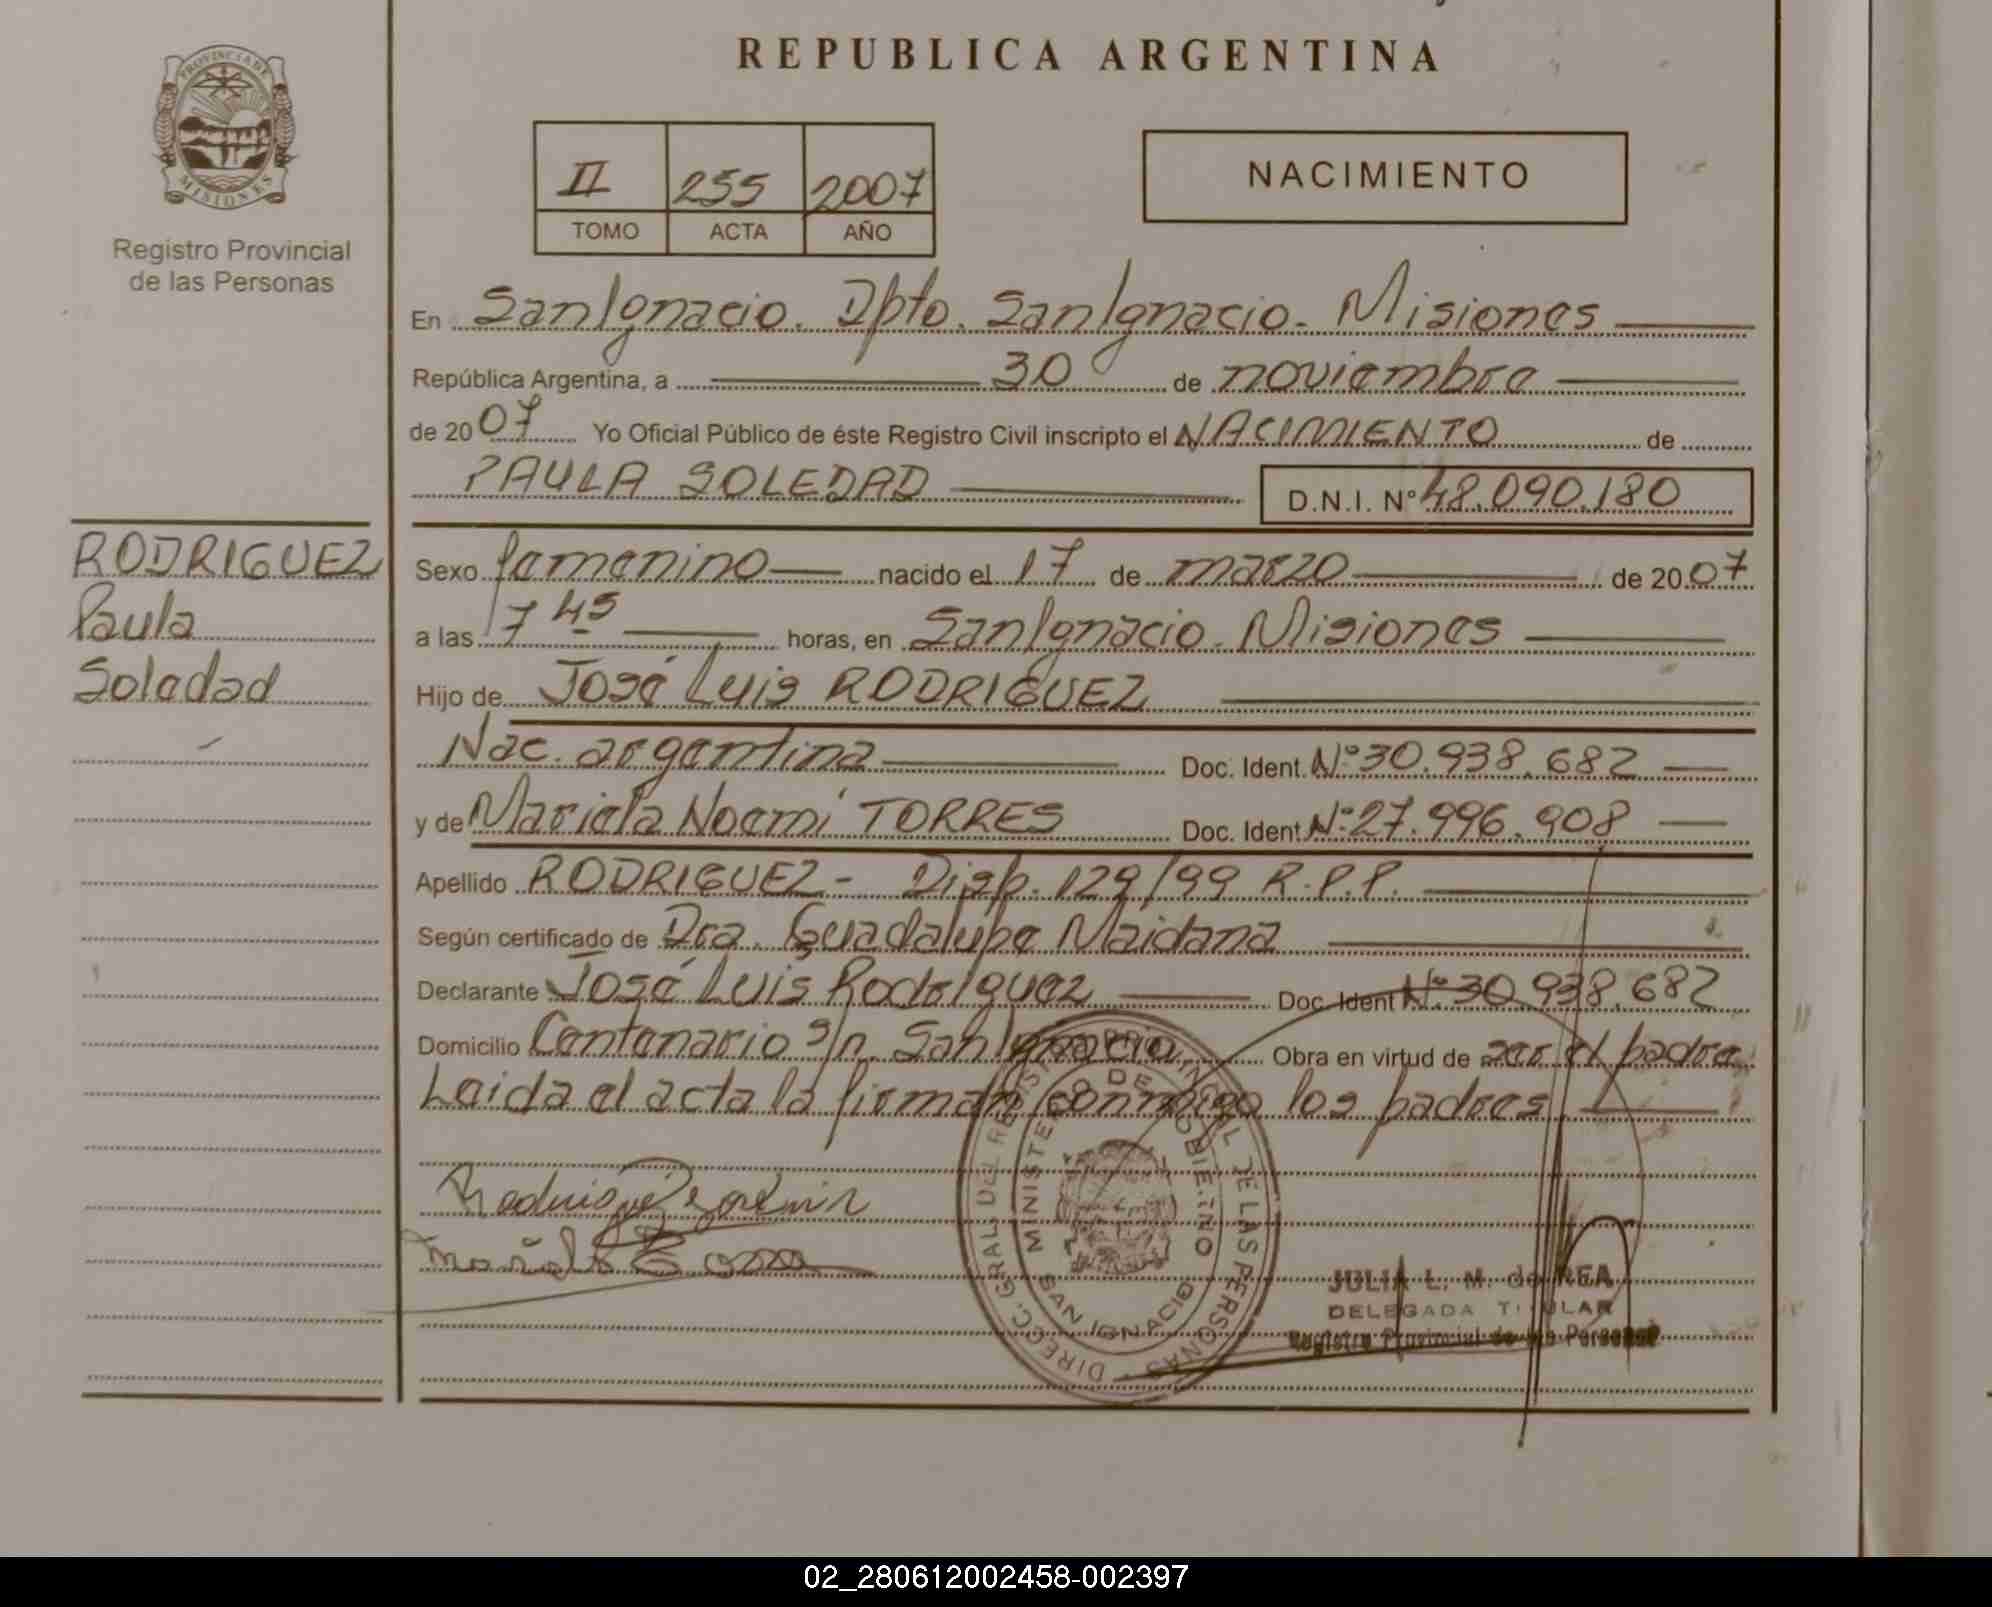 REPUBLICA ARGENTINA
PROVINCIA DE
MISIONES
Registro Provincial
de las Personas
II 255 2007
TOMO ACTA AÑO
NACIMIENTO
En San Ignacio. Dpto. San Ignacio. Misiones
República Argentina, a 30 de noviembre
de 2007 Yo Oficial Público de éste Registro Civil inscripto el NACIMIENTO de
PAULA SOLEDAD D.N.I. Nº 48.090.180
RODRIGUEZ
Paula
Soledad
Sexo femenino nacido el 17 de marzo de 2007
a las 7 45 horas, en San Ignacio. Misiones
Hijo de José Luis RODRIGUEZ
Nac. argentina Doc. Ident. Nº 30.938.682
y de Mariela Noemí TORRES Doc. Ident. Nº 27.996.908
Apellido RODRIGUEZ - Disp. 129/99 R.P.P.
Según certificado de Dra. Guadalupe Maidana
Declarante José Luis Rodríguez Doc. Ident Nº 30.938.682
Domicilio Centenario s/n. San Ignacio Obra en virtud de ser el padre
Leida el acta la firman conmigo los padres
DIRECC. GRAL. DEL REGISTRO PROVINCIAL DE LAS PERSONAS
MINISTERIO DE GOBIERNO
SAN IGNACIO
JULIA L. M. de REA
DELEGADA TITULAR
Registro Provincial de las Personas
02_280612002458-002397